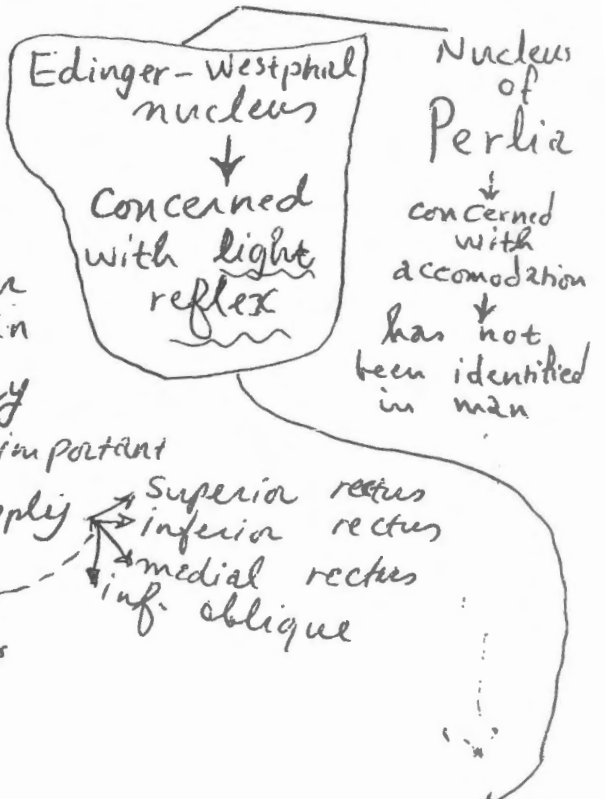 Edinger-Westphal
nucleus
↓
concerned
with light
reflex
Nucleus
of
Perlia
↓
concerned
with
accomodation
↓
has not
been identified
in man
important
Superior rectus
inferior rectus
medial rectus
inf. oblique